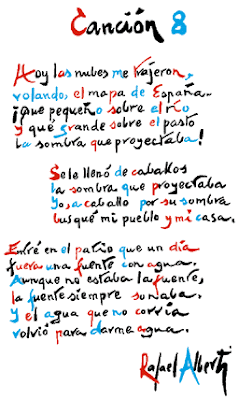 Canción 8
Hoy las nubes me trajeron,
volando, el mapa de España.
¡Que pequeño sobre el río
Y qué grande sobre el pasto
La sombra que proyectaba!
Se le llenó de caballos
la sombra que proyectaba
Yo, a caballo por su sombra
busqué mi pueblo y mi casa.
Entré en el patio que un día
fuera una fuente con agua.
Aunque no estaba la fuente,
la fuente siempre sonaba.
Y el agua que no corría
volvió para darme agua.
Rafael Alberti